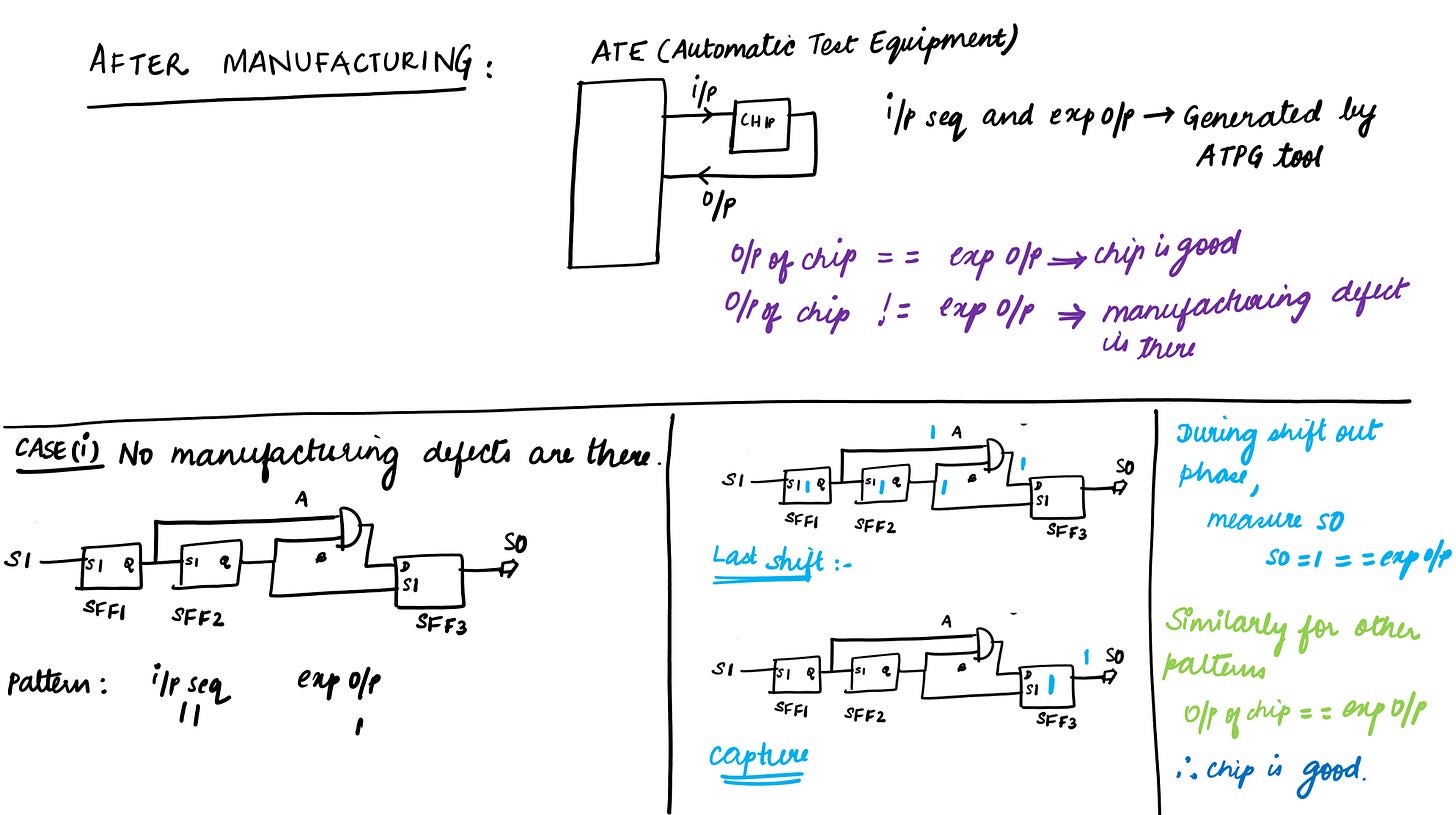 AFTER MANUFACTURING:
ATE (Automatic Test Equipment)
i/p
CHIP
o/p
i/p seq and exp o/p → Generated by
ATPG tool
o/p of chip == exp o/p ⇒ chip is good
o/p of chip != exp o/p ⇒ manufacturing defect
is there
CASE(i) No manufacturing defects are there.
A
SI
SI Q
SI Q
B
D
SI
SO
SFF1
SFF2
SFF3
pattern: i/p seq exp o/p
11 1
1 A
SI
SI 1 Q
SI 1 Q
1
B
1
D
SI
SO
SFF1
SFF2
SFF3
Last shift :-
A
SI
SI Q
SI Q
B
D
SI 1
1 SO
SFF1
SFF2
SFF3
Capture
During shift out
phase,
measure SO
SO=1 == exp o/p
Similarly for other
patterns
o/p of chip == exp o/p
∴ chip is good.